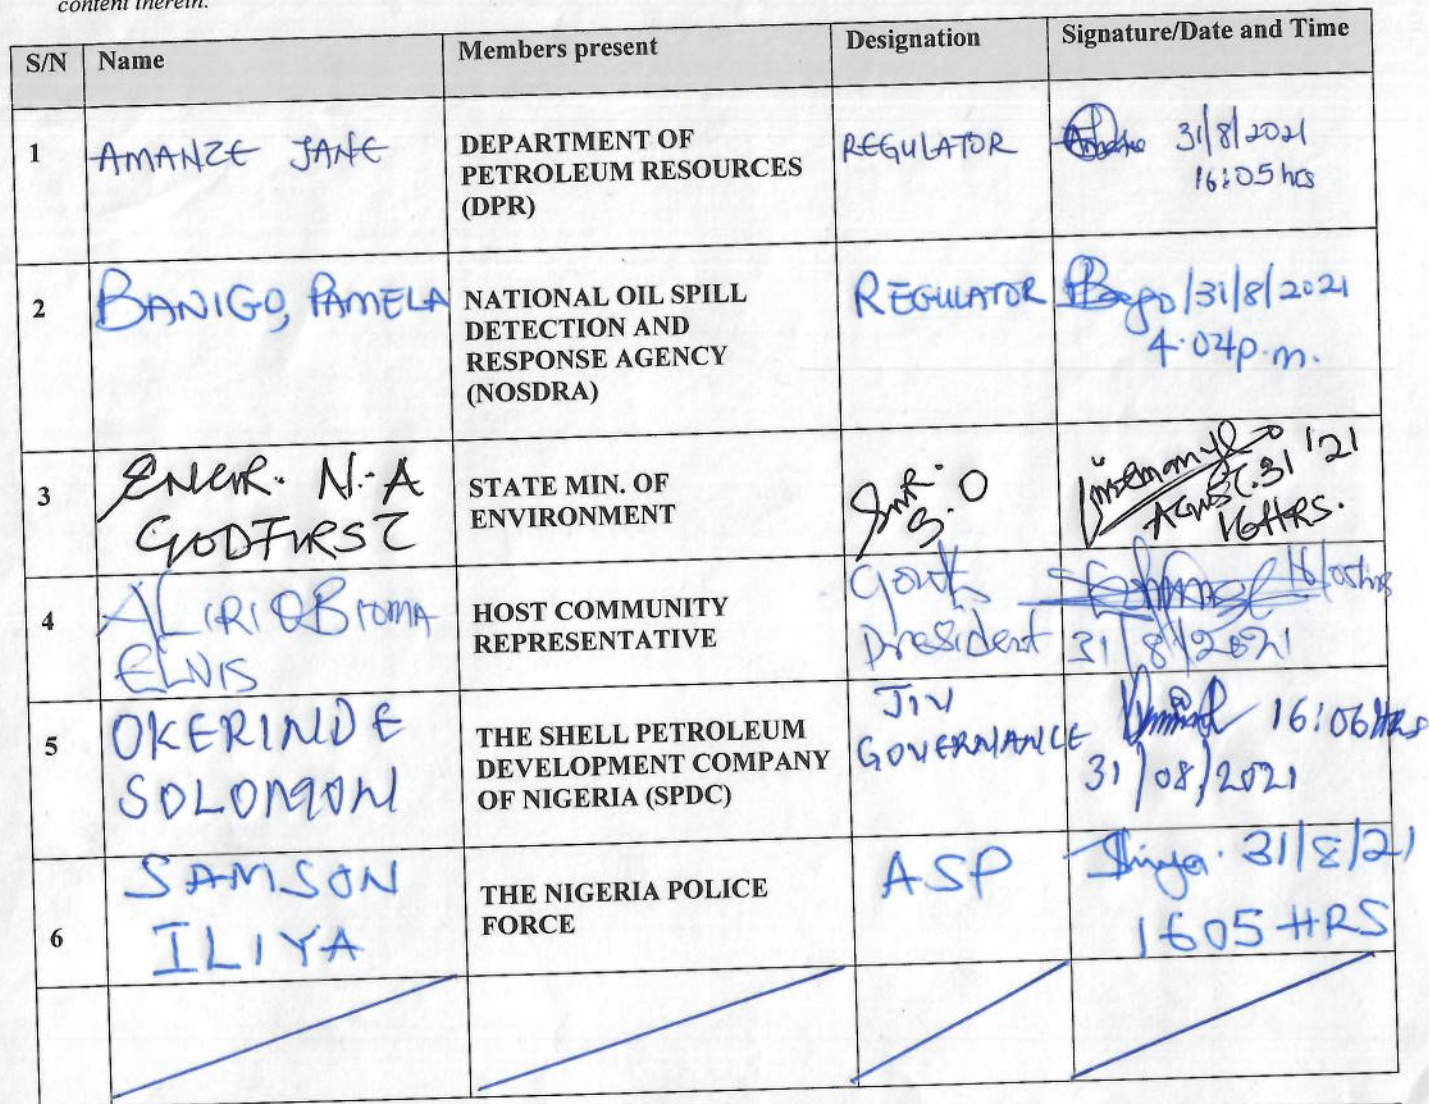 content therein.
S/N Name Members present Designation Signature/Date and Time
1 AMANZE JANE DEPARTMENT OF PETROLEUM RESOURCES (DPR) REGULATOR 31/8/2021 16:05hrs
2 BANIGO, PAMELA NATIONAL OIL SPILL DETECTION AND RESPONSE AGENCY (NOSDRA) REGULATOR 31/8/2021 4.04p.m.
3 ENGR. N.A GODFURST STATE MIN. OF ENVIRONMENT S.O 31 '21 16HRS.
4 ELVIS HOST COMMUNITY REPRESENTATIVE President 16/05hrs 31/8/2021
5 OKERINDE SOLOMON THE SHELL PETROLEUM DEVELOPMENT COMPANY OF NIGERIA (SPDC) JIV GOVERNANCE 16:06HRS 31/08/2021
6 SAMSON ILIYA THE NIGERIA POLICE FORCE ASP 31/8/21 1605HRS